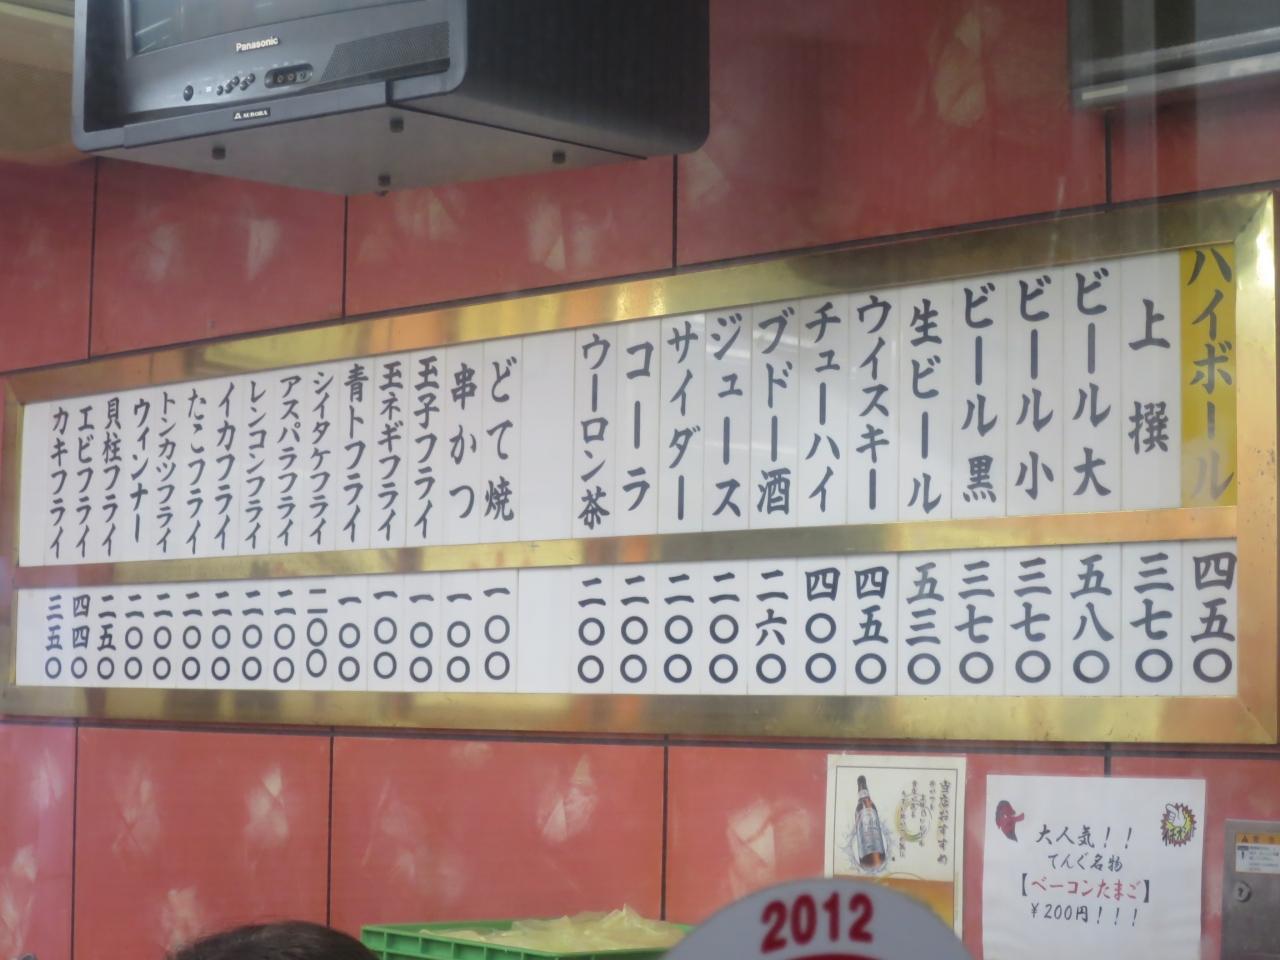 Panasonic
AURORA
ハイボール
四五〇
上撰
三七〇
ビール大
五八〇
ビール小
三七〇
ビール黒
三七〇
生ビール
五三〇
ウイスキー
四五〇
チューハイ
四〇〇
ブドー酒
二六〇
ジュース
二〇〇
サイダー
二〇〇
コーラ
二〇〇
ウーロン茶
二〇〇
どて焼
一〇〇
串かつ
一〇〇
玉子フライ
一〇〇
玉ネギフライ
一〇〇
青トフライ
一〇〇
シイタケフライ
二〇〇
アスパラフライ
二〇〇
レンコンフライ
二〇〇
イカフライ
二〇〇
たこフライ
二〇〇
トンカツフライ
二〇〇
ウィンナー
二〇〇
貝柱フライ
二五〇
エビフライ
四四〇
カキフライ
三五〇
当店おすすめ
大人気！！
てんぐ名物
【ベーコンたまご】
¥200円！！！
2012